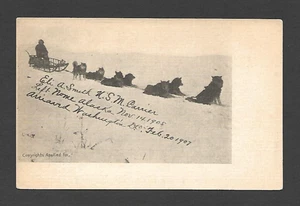 Eli A. Smith U.S.M. Carrier
Left Nome Alaska Nov. 14, 1905
Arrived Washington DC. Feb. 20 1907
Copyrights Applied for.